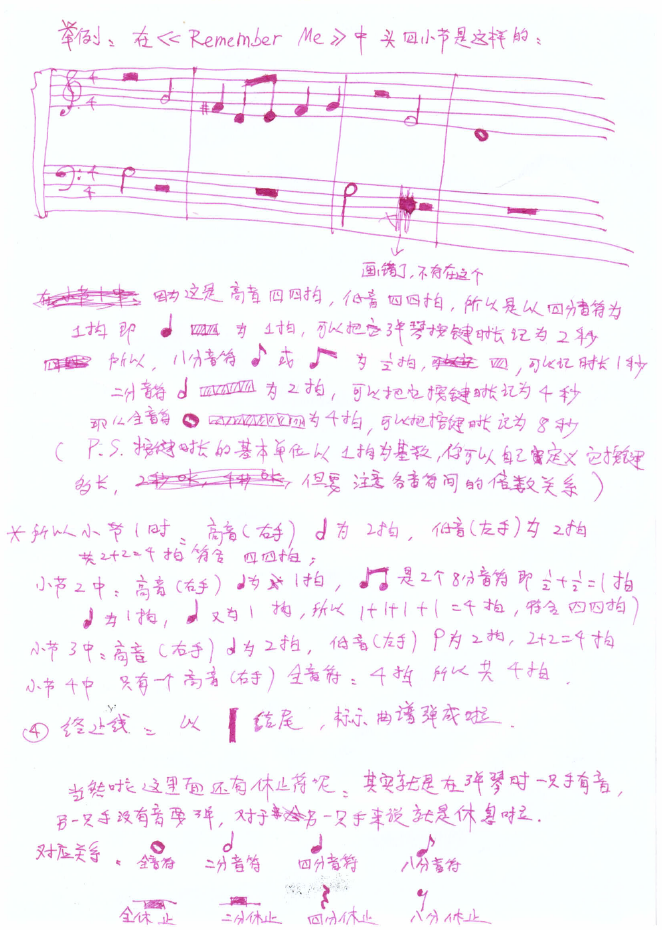 举例：在《Remember Me》中 头四小节是这样的：
4
4
4
4
画错了，不存在这个
因为这是高音四四拍，低音四四拍，所以是以四分音符为
1拍 即 为1拍，可以把它弹琴按键时长记为2秒
所以，八分音符 或 为½拍， 可记时长1秒
二分音符 为2拍，可以把它按键时长记为4秒
那么全音符 为4拍，可以把按键时长记为8秒
（P.S. 按键时长的基本单位以1拍为基数，你可以自己定义它按键
多长， 但要注意各音符间的倍数关系）
所以小节1时：高音（右手） 为2拍，低音（左手）为2拍
共2+2=4拍 符合四四拍；
小节2中：高音（右手） 为1拍， 是2个8分音符即½+½=1拍
为1拍， 又为1拍，所以1+1+1+1=4拍，符合四四拍）
小节3中：高音（右手） 为2拍，低音（左手） 为2拍，2+2=4拍
小节4中 只有一个高音（右手）全音符：4拍 所以共4拍．
④ 终止线：以 结尾，标示曲谱弹成啦．
当然啦这里面还有休止符呢：其实就是在弹琴时一只手有音，
另一只手没有音要弹，对于另一只手来说就是休息时位．
对应关系： 全音符 二分音符 四分音符 八分音符
全休止 二分休止 四分休止 八分休止